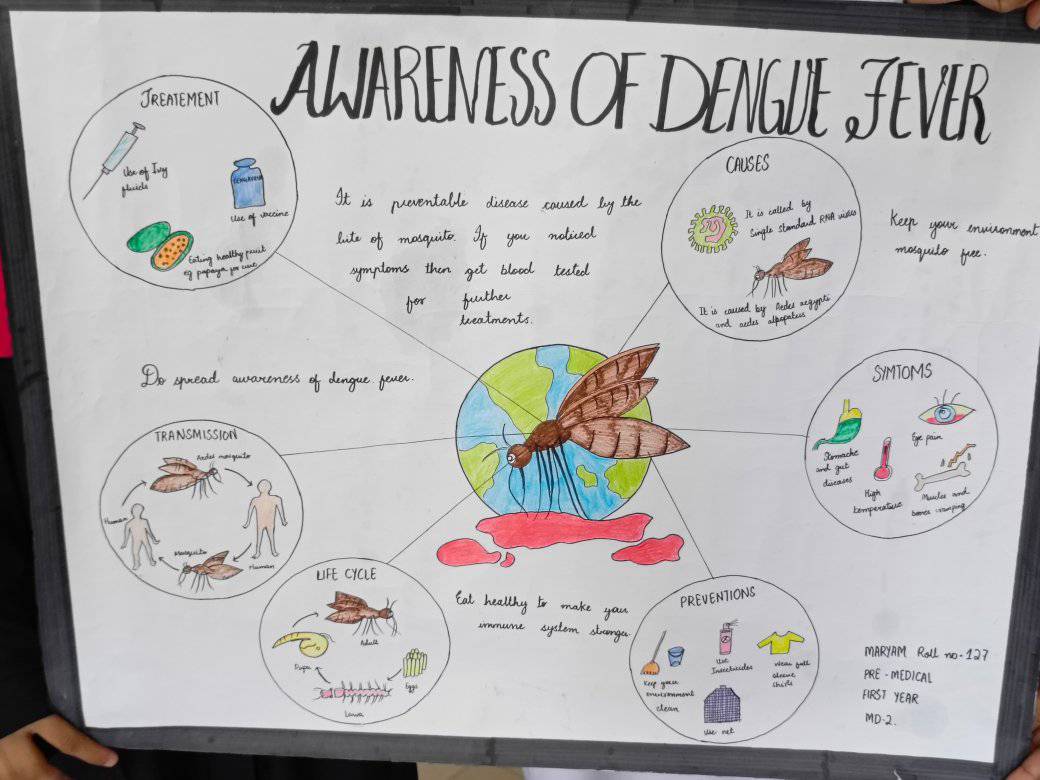 AWARENESS OF DENGUE FEVER
TREATEMENT
Use of Ivy
fluids
DENGVAXIA
Use of vaccine
Eating healthy fruit
eg papaya for cure
It is preventable disease caused by the
bite of mosquito. If you noticed
symptoms then get blood tested
for further
treatments.
CAUSES
It is called by
Single standard RNA virus
It is caused by Aedes aegypti
and aedes albopotus
Keep your environment
mosquito free.
Do spread awareness of dengue fever.
TRANSMISSION
Aedes mosquito
Human
Mosquito
Human
SYMTOMS
Stomache
and gut
diseases
Eye pain
High
temperature
Muscles and
bones cramping
LIFE CYCLE
Adult
Pupa
Eggs
Larva
Eat healthy to make your
immune system stronger.
PREVENTIONS
Keep your
environment
clean
Use
Insecticides
Wear full
sleeve
shirts
Use net
MARYAM Roll no-127
PRE-MEDICAL
FIRST YEAR
MD-2.